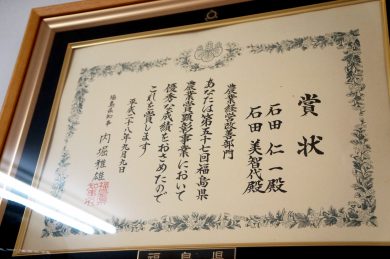 賞状
石田仁一殿
石田美智代殿
農業経営改善部門
あなたは第五十七回福島県
農業賞顕彰事業において
優秀な成績をおさめたので
これを賞します
平成二十八年九月九日
福島県知事 内堀雅雄
福島県